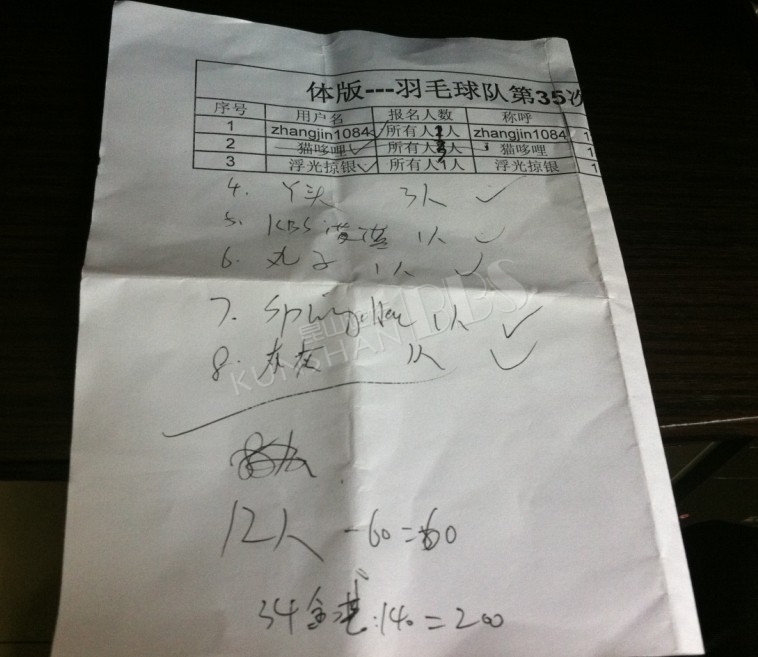 体版---羽毛球队第35次
序号 用户名 报名人数 称呼
1 zhangjin1084 所有人1人 zhangjin1084 1
2 猫哆哩 所有人人 猫哆哩 1
3 浮光掠银 所有人1人 浮光掠银 1
4. 丫头 3人 ✓
5. KBS 1人 ✓
6. 丸子 1人 ✓
7. 1人 ✓
8. 灰灰 1人 ✓
昆山 BBS
KUNSHAN
12人 -60=60
34 140=200